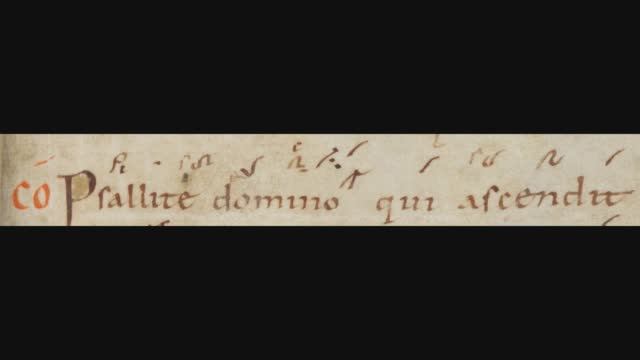 CŌ Psallite domino qui ascendit